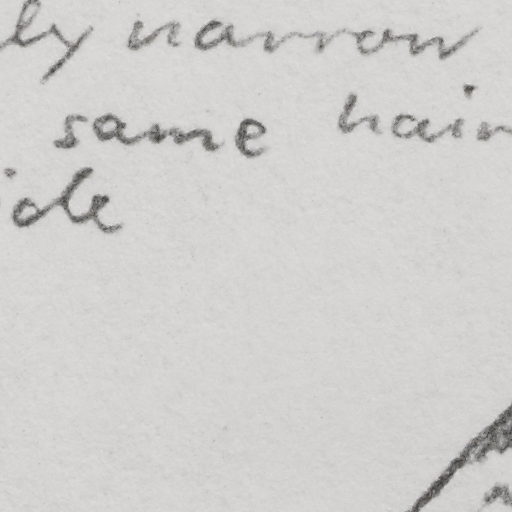 ly narrow
same hair
ide